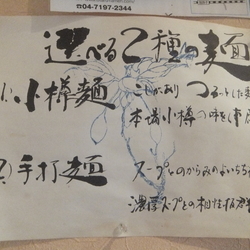 ☎04-7197-2344
選べる2種の麺
小樽麺
こしがあり つるっとした
本場小樽の味を
2)手打麺
スープのからみのよい
濃厚スープとの相性抜群